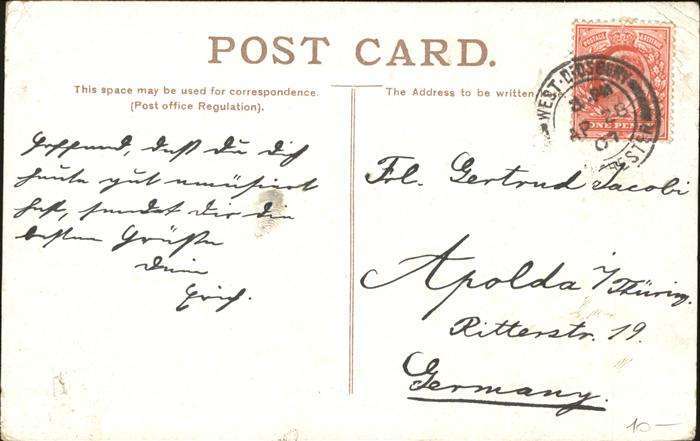 POST CARD.
This space may be used for correspondence.
(Post office Regulation).
Hoffend, daß du dich
heute gut amüsiert
hast, sendet dir die
besten Grüße
Dein
Erich.
The Address to be written
WEST DIDSBURY
AP 28
07
ESTER
POSTAGE REVENUE
ONE PEN
Frl. Gertrud Jacobi
Apolda i/Thüring.
Ritterstr. 19.
Germany.
10-